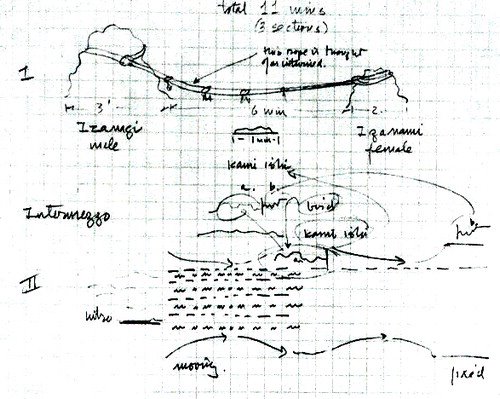 total 11 mins
(3 sections)
this rope is thought
of as intermed.
I
3'
6 min
2
Izanagi
male
Izanami
female
1 - 1 min - 1
Kami Ishi
a. b.
Intermezzo
bird
b
Kami Ishi
a
II
moving
fixed